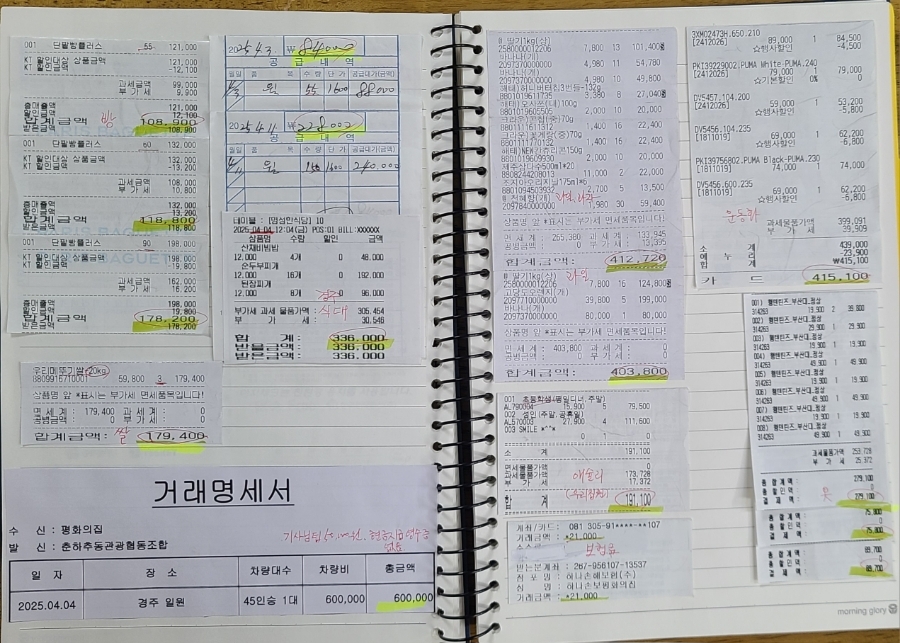 001 단팥빵플러스 55 121,000
KT 할인대상 상품금액 121,000
KT 할인금액 -12,100
과세금액 99,000
부가세 9,900
총매출액 121,000
할인금액 12,100
합계금액 빵 108,900
받은금액 108,900
001 단팥빵플러스 60 132,000
KT 할인대상 상품금액 132,000
KT 할인금액 -13,200
과세금액 108,000
부가세 10,800
총매출액 132,000
할인금액 13,200
합계금액 118,800
받은금액 118,800
001 단팥빵플러스 90 198,000
KT 할인대상 상품금액 198,000
KT 할인금액 -19,800
과세금액 162,000
부가세 16,200
총매출액 198,000
할인금액 19,800
합계금액 178,200
받은금액 178,200
우리메뚜기쌀20kg
8809916710011 59,800 3 179,400
상품명 앞 *표시는 부가세 면세품목입니다!
면세계: 179,400 과세계: 0
공병금액: 0 부가세: 0
합계금액: 쌀 179,400
2025.4.3 ₩84,000
공급내역
월일 품목 수량 단가 공급대가(금액)
55 1600 88000
2025.4.11 ₩228,000
공급내역
월일 품목 수량 단가 공급대가(금액)
150 1600 240,000
테이블: [명성한식당] 10
2025.04.04 12:04(금) POS:01 BILL:XXXXXX
상품명 수량 할인 금액
산채비빔밥
12,000 4개 0 48,000
순두부찌개
12,000 16개 0 192,000
된장찌개
12,000 8개 0 96,000
경주 식대
부가세 과세 물품가액 305,454
부가세 30,546
합계: 336,000
받을금액: 336,000
받은금액: 336,000
거래명세서
수 신 : 평화의집
발 신 : 춘하추동관광협동조합
일 자 장 소 차량대수 차량비 총금액
2025.04.04 경주 일원 45인승 1대 600,000 600,000
딸기1kg(상)
2580000012206 7,800 13 101,400
바나나(개)
2097370000000 4,980 11 54,780
바나나(개)
2097370000000 4,980 10 49,800
해태)허니버터칩3번들-132g
8801019611735 3,380 8 27,040
해태)오사쯔(대)100g
8801019605550 2,000 10 20,000
8801111611312 1,400 16 22,400
8801111770132 1,400 16 22,400
8801019609930 2,000 10 20,000
제주삼다수500ml*20
8808244208013 11,000 2 22,000
8801094503932 2,700 5 13,500
2097840000000 1,980 30 59,400
상품명 앞 *표시는 부가세 면세품목입니다!
면세계: 265,380 과세계: 133,945
공병금액: 0 부가세: 13,395
합계금액: 412,720
딸기1kg(상) 과일
2580000012206 7,800 16 124,800
2097710000000 39,800 5 199,000
바나나(개)
2097370000000 80,000 1 80,000
상품명 앞 *표시는 부가세 면세품목입니다!
면세계: 403,800 과세계: 0
공병금액: 0 부가세: 0
합계금액: 403,800
001 초등학생(평일디너,주말)
AL790004 15,900 5 79,500
002 성인(주말,공휴일)
AL570003 27,900 4 111,600
003 SMILE *^^*
0 1 0
소 계 191,100
면세물품가액 0
과세물품가액 애슐리 173,728
부가세 17,372
합 계 191,100
계좌/카드: 081 305-91****-**107
거래금액: *21,000
보험료
받는분계좌: 267-956107-13537
하나손해보험(주)
거래금액: *21,000
3XM02473H.650.210 1 84,500
[2412026] 89,000 -4,500
☆행사할인
PKT39229002.PUMA White-PUMA.240
[2412026] 79,000 1 79,000
☆기본할인 0% 0
DV5457.104.200 1 53,200
[2412026] 59,000 -5,800
☆행사할인
DV5456.104.235 1 62,200
[1811019] 69,000 -6,800
☆행사할인
PKI39756802.PUMA Black-PUMA.230
[1811019] 74,000 1 74,000
DV5456.600.235 1 62,200
[1811019] 69,000 -6,800
☆행사할인
운동화
과세물품가액 399,091
부가세 39,909
소 계 439,000
에누리 -23,900
합 계 ₩415,100
카 드 415,100
001) 웰메이드_부산대_정상
314263 19,900 2 39,800
314263 29,900 1 29,900
314263 19,900 1 19,900
314263 49,900 1 49,900
314263 19,900 1 19,900
314263 19,900 1 19,900
314263 49,900 1 49,900
314263 49,900 1 49,900
과세물품가액 253,728
부가세 25,372
총합계액: 279,100
총할인액: 0
결제액: 옷 279,100
총합계액: 75,800
총할인액: 0
결제액: 75,800
총합계액: 89,700
총할인액: 0
결제액: 89,700
morning glory